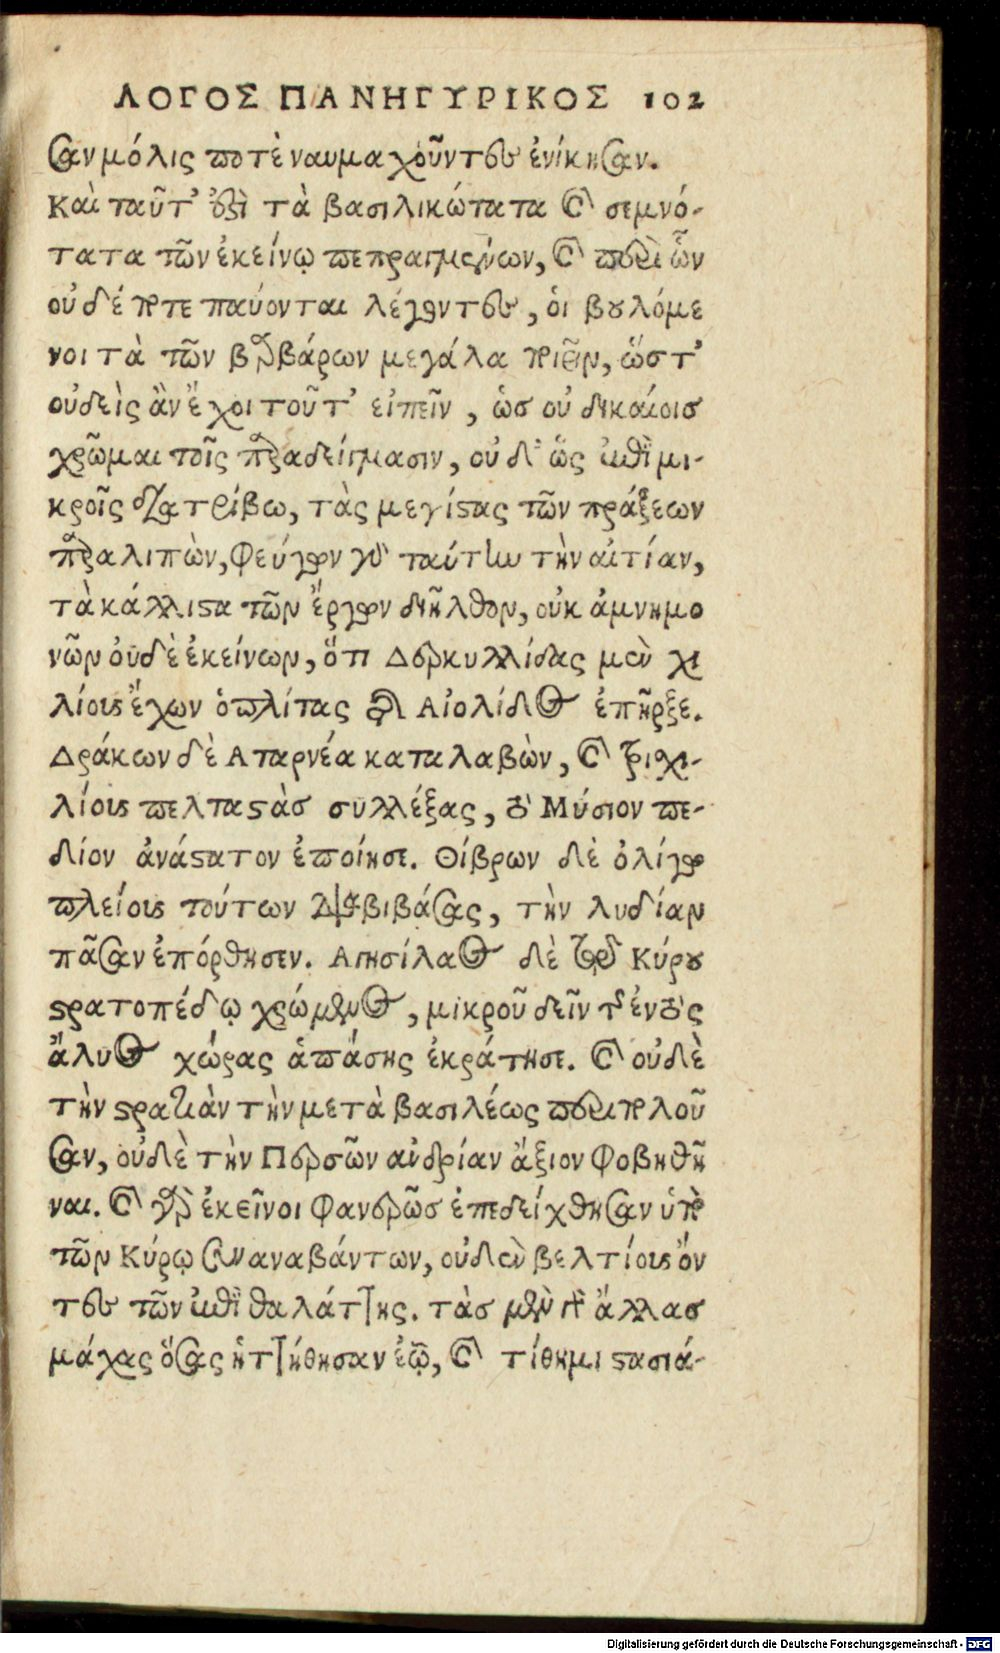 ΛΟΓΟΣ ΠΑΝΗΓΥΡΙΚΟΣ 102
σαν μόλις ποτὲ ναυμαχοῦντες ἐνίκησαν.
Καὶ ταῦτ' ἐστὶ τὰ βασιλικώτατα καὶ σεμνό-
τατα τῶν ἐκείνῳ πεπραγμένων, καὶ περὶ ὧν
οὐδέποτε παύονται λέγοντες, οἱ βουλόμε
νοι τὰ τῶν βαρβάρων μεγάλα ποιεῖν, ὥστ'
οὐδεὶς ἂν ἔχοι τοῦτ' εἰπεῖν, ὡσ οὐ δικαίοισ
χρῶμαι τοῖς παραδείγμασιν, οὐδ' ὡς ἐπὶ μι-
κροῖς διατρίβω, τὰς μεγίστας τῶν πράξεων
παραλιπὼν, φεύγων γὰρ ταύτην τὴν αἰτίαν,
τὰ κάλλιστα τῶν ἔργων διῆλθον, οὐκ ἀμνημο
νῶν οὐδὲ ἐκείνων, ὅτι Δερκυλλίδας μὲν χι
λίους ἔχων ὁπλίτας τῆς Αἰολίδος ἐπῆρξε.
Δράκων δὲ Αταρνέα καταλαβὼν, καὶ τριχι-
λίους πελταστὰσ συλλέξας, τὸ Μύσιον πε-
δίον ἀνάστατον ἐποίησε. Θίβρων δὲ ὀλίγῳ
πλείους τούτων διαβιβάσας, τὴν λυδίαν
πᾶσαν ἐπόρθησεν. Αγησίλαος δὲ τῷ Κύρου
στρατοπέδῳ χρώμενος, μικροῦ δεῖν τῆς ἐντὸς
ἅλυος χώρας ἁπάσης ἐκράτησε. καὶ οὐδὲ
τὴν στρατιὰν τὴν μετὰ βασιλέως περιπολοῦ
σαν, οὐδὲ τὴν Περσῶν ανδρίαν ἄξιον φοβηθῆ
ναι. καὶ γὰρ ἐκεῖνοι φανερῶσ ἐπεδείχθησαν ὑπὸ
τῶν Κύρῳ συναναβάντων, οὐδὲν βελτίους ὄν
τες τῶν ἐπὶ θαλάττης. τὰσ μὲν γὰρ ἄλλασ
μάχας ὅσας ἡττήθησαν ἐῶ, καὶ τίθημι στασιά-
Digitalisierung gefördert durch die Deutsche Forschungsgemeinschaft - DFG